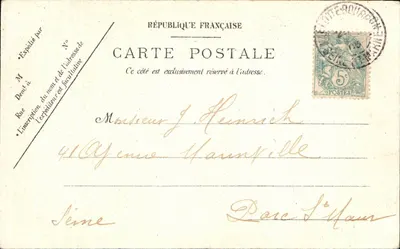 RÉPUBLIQUE FRANÇAISE
CARTE POSTALE
Ce côté est exclusivement réservé à l'adresse.
Expédié par
M
Demt à
Rue
No
L'inscription du nom et de l'adresse de
l'expéditeur est facultative
5
Monsieur J Heinrich
41 Avenue
Seine
Parc St Maur